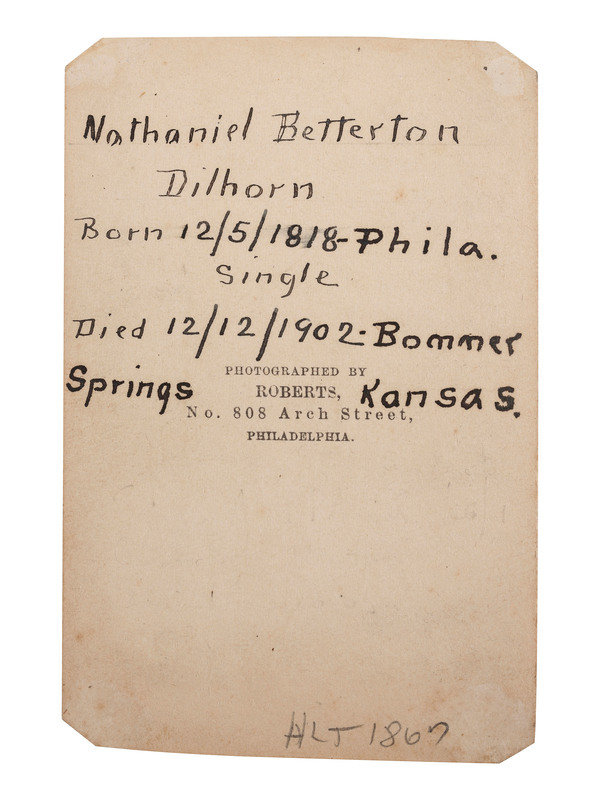 Nathaniel Betterton
Dilhorn
Born 12/5/1818-Phila.
Single
Died 12/12/1902-Bommer
PHOTOGRAPHED BY
Springs ROBERTS, Kansas.
No. 808 Arch Street,
PHILADELPHIA.
HLJ 1867